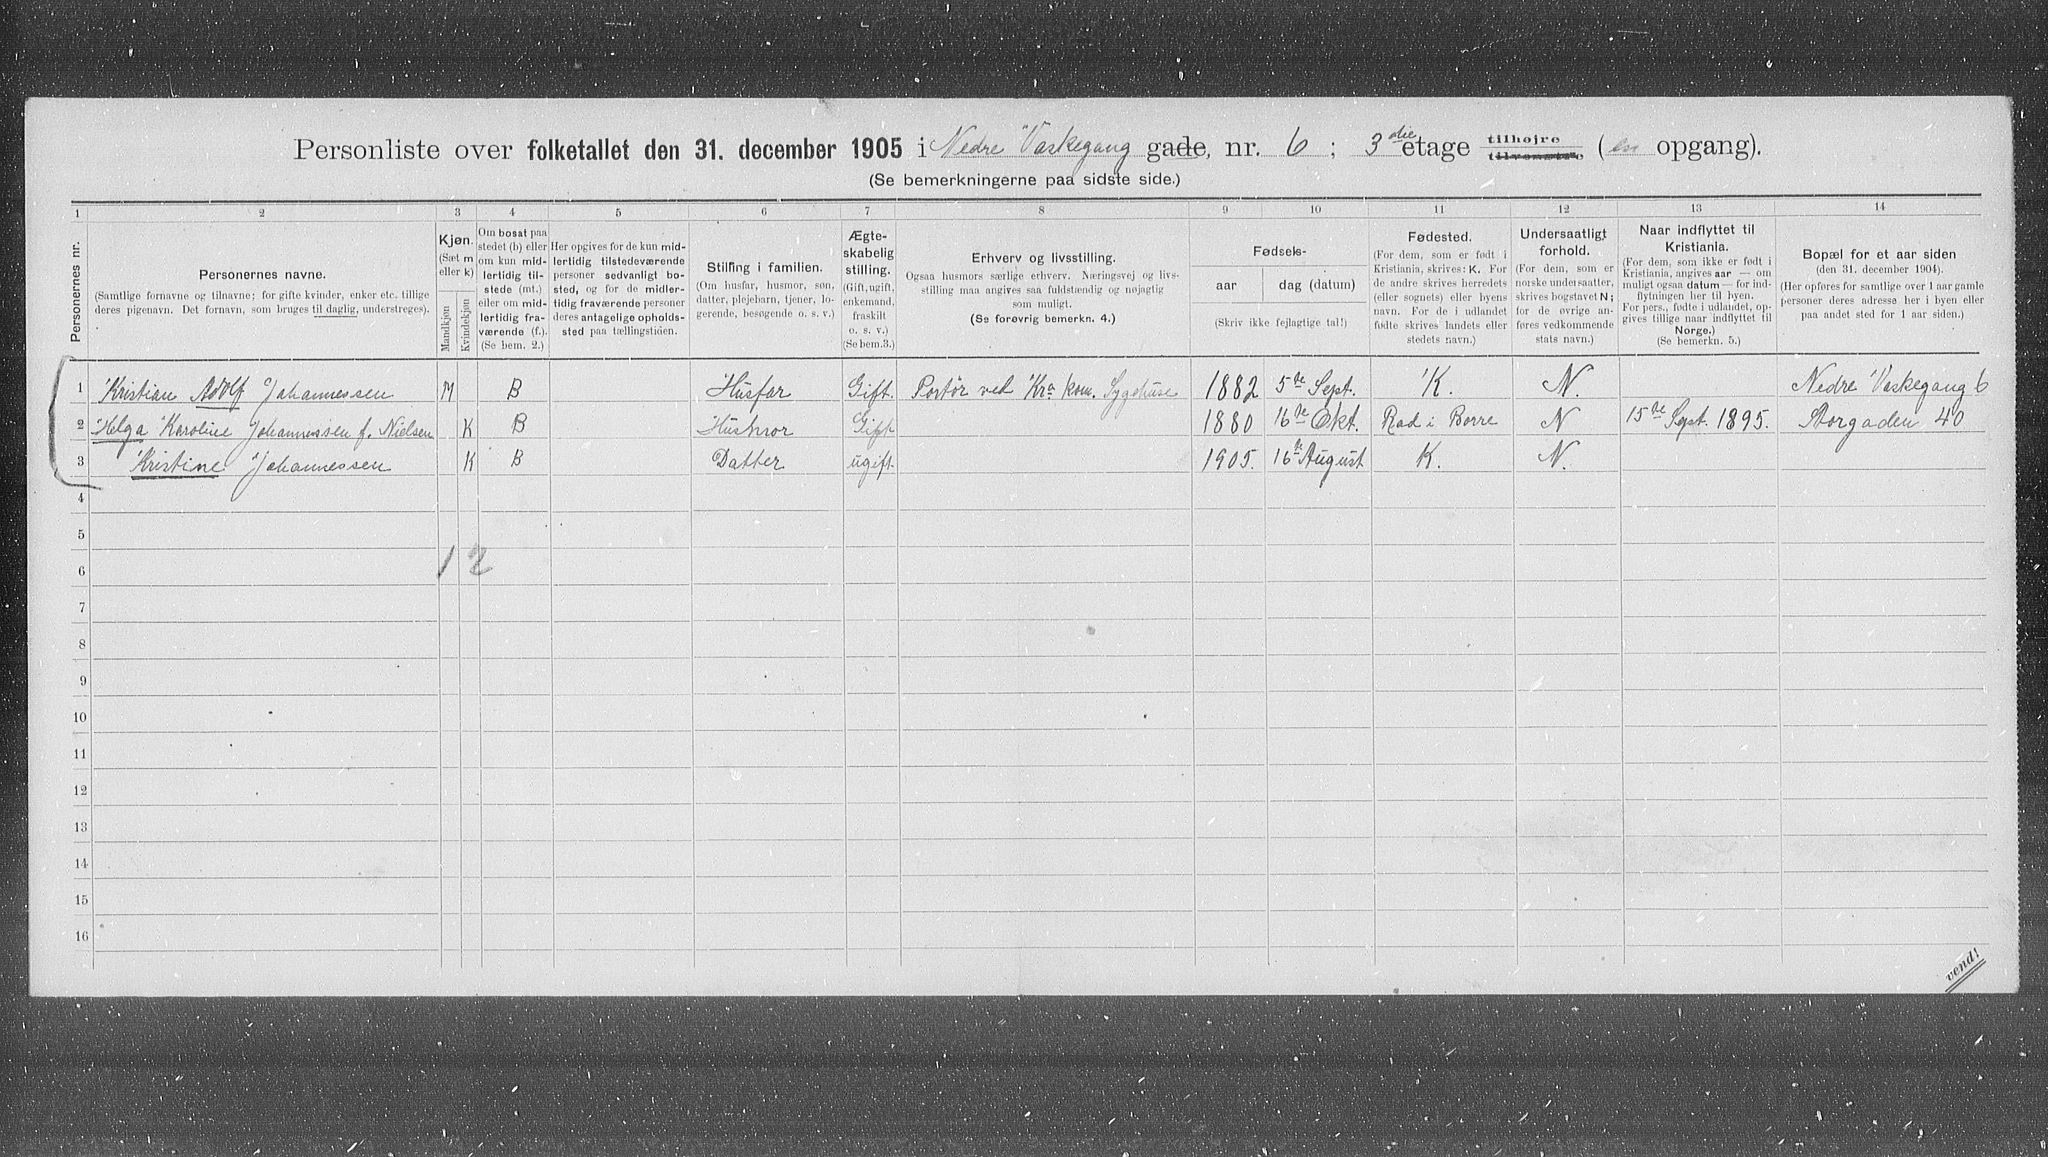 Personliste over folketallet den 31. december 1905 i Nedre Vaskegang gade, nr. 6 ; 3 die etage tilhøjre tilvenstre (en opgang).
(Se bemerkningerne paa sidste side.)
1 2 3 4 5 6 7 8 9 10 11 12 13 14
Personernes nr.
Personernes navne.
(Samtlige fornavne og tilnavne; for gifte kvinder, enker etc. tillige
deres pigenavn. Det fornavn, som bruges til daglig, understreges).
Kjøn.
(Sæt m
eller k)
Mandkjøn
Kvindekjøn
Om bosat paa
stedet (b) eller
om kun mid-
lertidig til-
stede (mt.)
eller om mid-
lertidig fra-
værende (f.).
(Se bem. 2.)
Her opgives for de kun mid-
lertidig tilstedeværende
personer sedvanligt bo-
sted, og for de midler-
tidig fraværende personer
deres antagelige opholds-
sted paa tællingstiden.
Stilling i familien.
(Om husfar, husmor, søn,
datter, plejebarn, tjener, lo-
gerende, besøgende o. s. v.)
Ægte-
skabelig
stilling.
(Gift, ugift,
enkemand,
fraskilt
o. s. v.)
(Se bem.3.)
Erhverv og livsstilling.
Ogsaa husmors særlige erhverv. Næringsvej og livs-
stilling maa angives saa fuldstændig og nøjagtig
som muligt.
(Se forøvrig bemerkn. 4.)
Fødsels-
aar dag (datum)
(Skriv ikke fejlagtige tal!)
Fødested.
(For dem, som er født i
Kristiania, skrives: K. For
de andre skrives herredets
(eller sognets) eller byens
navn. For de i udlandet
fødte skrives landets eller
stedets navn.)
Undersaatligt
forhold.
(For dem, som er
norske undersaatter,
skrives bogstavet N;
for de øvrige an-
føres vedkommende
stats navn.)
Naar indflyttet til
Kristiania.
(For dem, som ikke er født i
Kristiania, angives aar — om
muligt ogsaa datum — for ind-
flytningen her til byen.
For pers., fødte i udlandet, op-
gives tillige naar indflyttet til
Norge.)
(Se bemerkn. 5.)
Bopæl for et aar siden
(den 31. december 1904).
(Her opføres for samtlige over 1 aar gamle
personer deres adresse her i byen eller
paa andet sted for 1 aar siden.)
1 Kristian Adolf Johannessen M B Husfar Gift. Portør ved Kra kom. Sygehuse 1882 5te Sept. K. N. Nedre Vaskegang 6
2 Helga Karoline Johannessen f. Nielsen K B Husmor Gift 1880 16de Okt. Rød i Borre N 15de Sept. 1895. Storgaden 40
3 Kristine Johannessen K B Datter ugift. 1905. 16de August K. N.
4
5
1 2
6
7
8
9
10
11
12
13
14
15
16
vend!